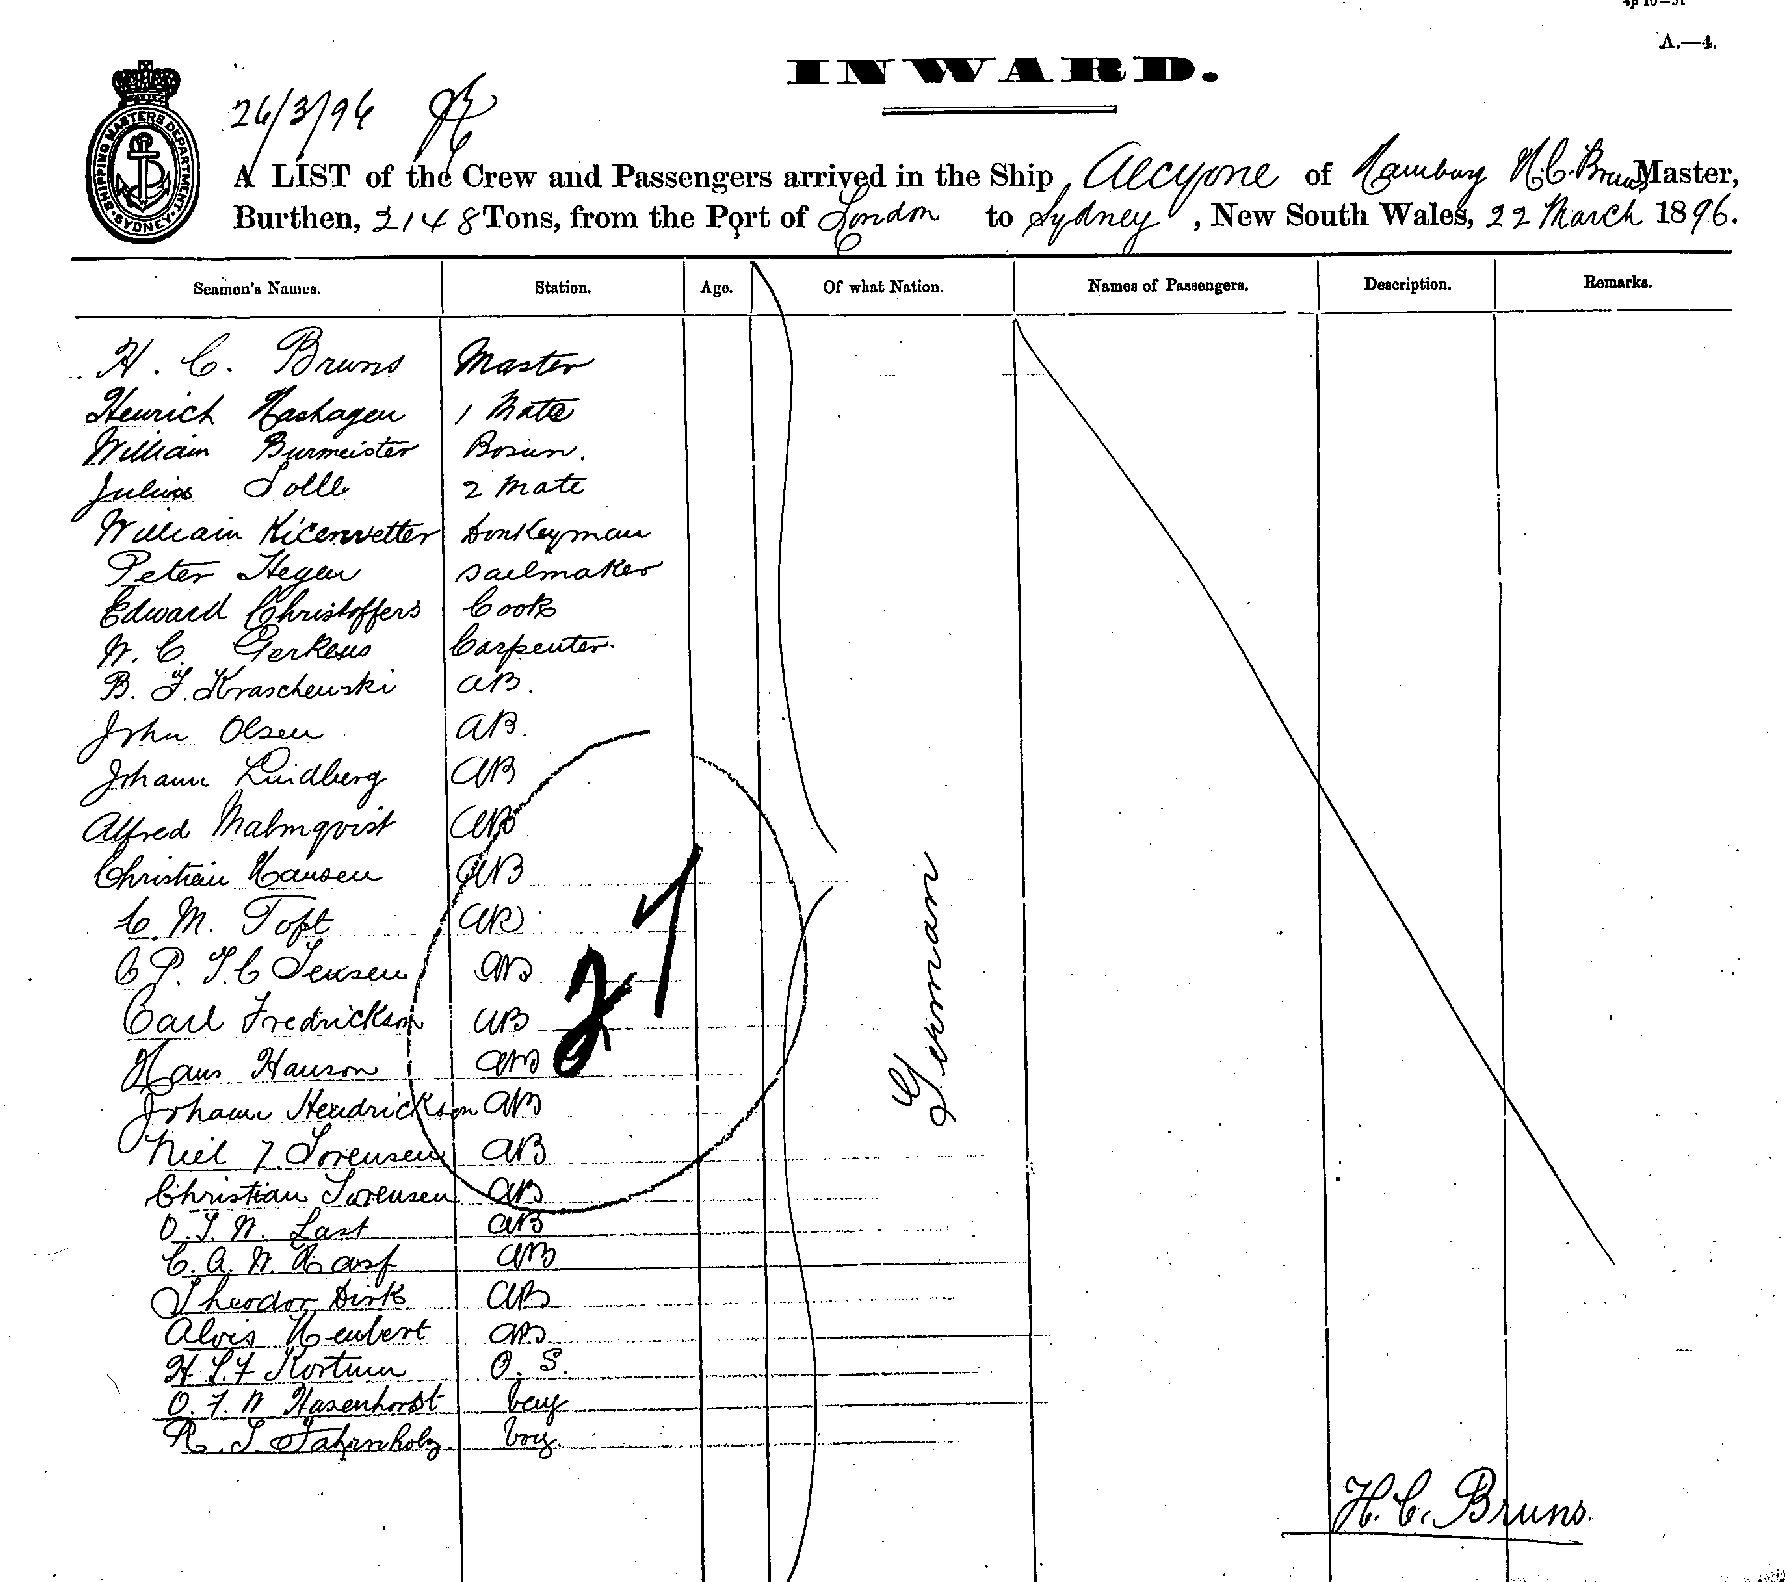 A.—4.
INWARD.
26/3/96
SHIPPING MASTERS DEPARTMENT SYDNEY
A LIST of the Crew and Passengers arrived in the Ship Alcyone of Hamburg H.C. Bruns Master,
Burthen, 2148 Tons, from the Port of London to Sydney, New South Wales, 22 March 1896.
Seamen's Names. Station. Age. Of what Nation. Names of Passengers. Description. Remarks.
H. C. Bruns Master
Henrich Hashagen 1 Mate
William Burmeister Bosun.
Julius Tolle 2 Mate
William Kicenvetter Donkeyman
Peter Heyen Sailmaker
Edward Christoffers Cook
W. C. Gerkens Carpenter.
B. F. Kraschewski AB.
John Olsen AB.
Johann Lindberg AB
Alfred Malmqvist AB
Christian Hansen AB
C. M. Toft AB
C P. T. C Jensen AB
Carl Fredrickson AB
Hans Hanson AB
Johann Hendrickson AB
Niel J. Sorensen AB
Christian Sorensen AB
O. J. W. Last AB
C. A. W. AB
Theodor Dirk AB
Alois Neubert AB
H. Kortum O. S.
O. F. W Hasenhorst boy
R. J. Fahrnholz boy.
27
German
H. C. Bruns.